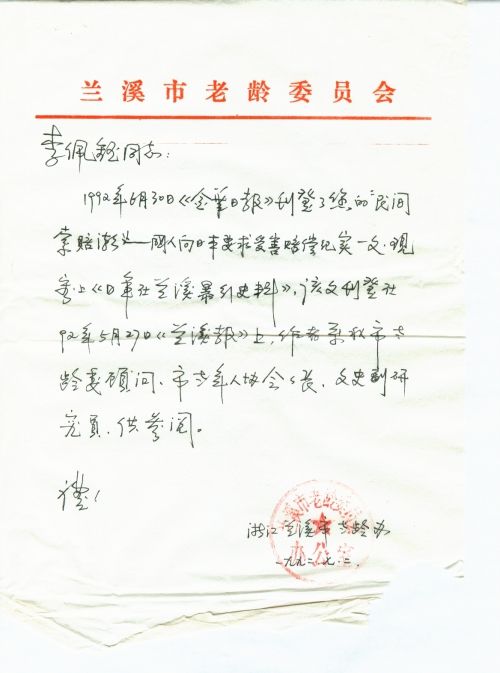 兰溪市老龄委员会
李佩 同志：
1992年6月30日《金华日报》刊登了您的"民间
索赔潮 —国人向日本要求受害赔偿纪实一文，现
寄上《日军在兰溪暴行史料》，该文刊登在
92年5月27日《兰溪报》上，作者 市老
龄委顾问、市老年人协会会长、文史副研
究员，供参阅。
礼！
浙江兰溪市老龄办
一九九二.七.二.
兰溪市老龄委员会
办公室